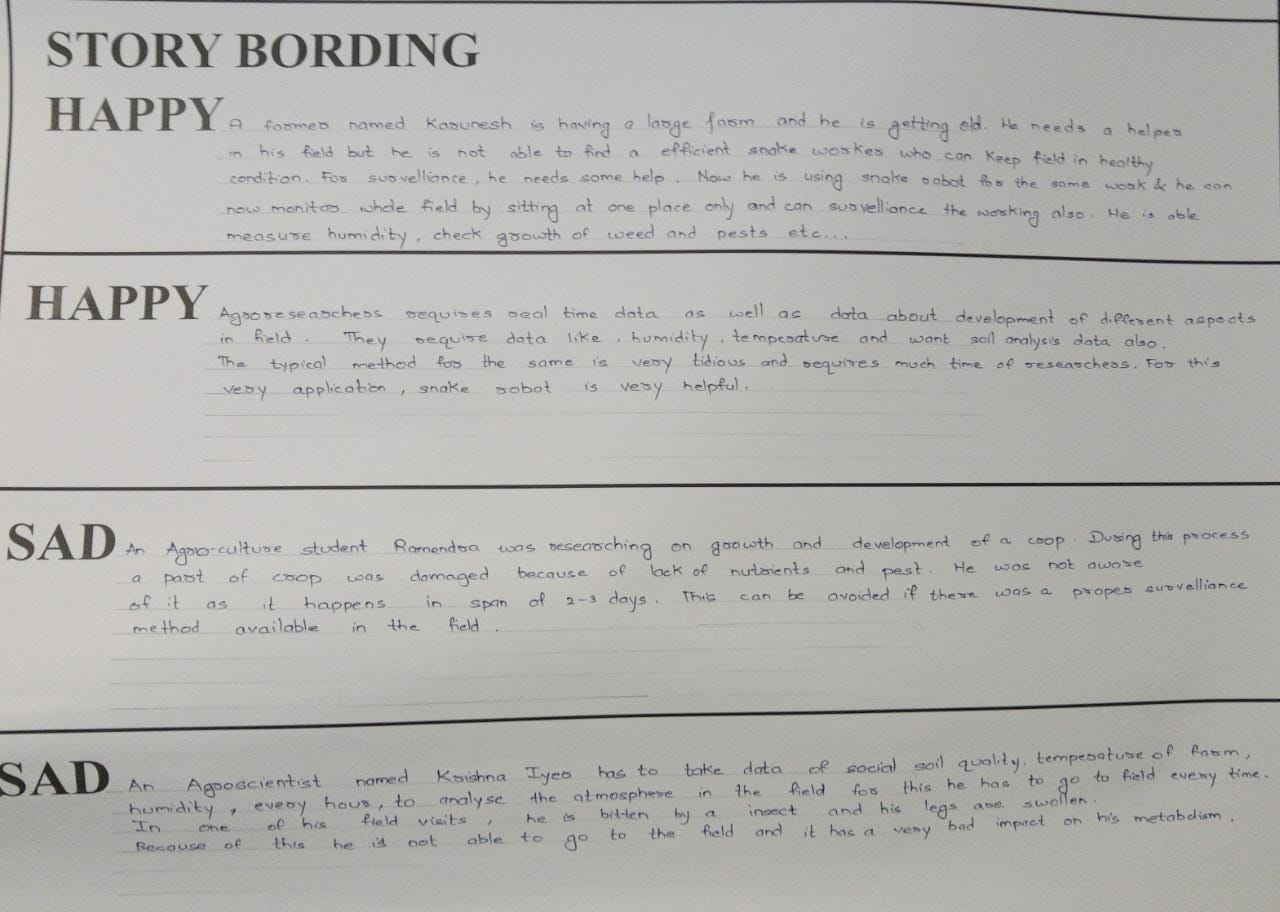 STORY BORDING
HAPPY A farmer named Karunesh is having a large farm and he is getting old. He needs a helper
in his field but he is not able to find a efficient snake worker who can keep field in healthy
condition. For survelliance, he needs some help. Now he is using snake robot for the same work & he can
now monitor whole field by sitting at one place only and can survelliance the working also. He is able
measure humidity, check growth of weed and pests etc...
HAPPY Agroresearchers requires real time data as well as data about development of different aspects
in field. They require data like, humidity, temperature and want soil analysis data also.
The typical method for the same is very tidious and requires much time of researchers. For this
very application, snake robot is very helpful.
SAD An Agro-culture student Ramendra was researching on growth and development of a crop. During this process
a part of crop was damaged because of lack of nutrients and pest. He was not aware
of it as it happens in span of 2-3 days. This can be avoided if there was a proper survelliance
method available in the field.
SAD An Agroscientist named Krishna Iyer has to take data of social soil quality, temperature of farm,
humidity, every hour, to analyse the atmosphere in the field for this he has to go to field every time.
In one of his field visits, he is bitten by a insect and his legs are swollen.
Because of this he is not able to go to the field and it has a very bad impact on his metabolism.